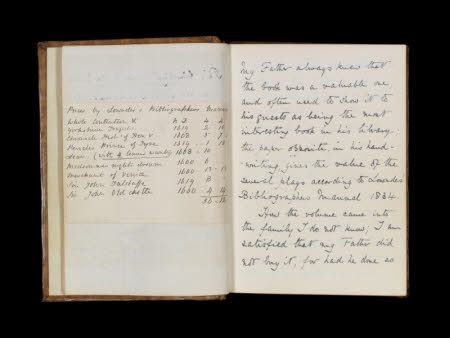 Prices by Lowndes's Bibliographers Manual
Whole Contention &
Yorkshire Tragedy 1619 2
Chronicle Hist. of Hen V 1608 5
Pericles Prince of Tyre 1619
Lear (with 4 leaves
Midsummer night's dream 1600
Merchant of Venice 1600
Sir John Falstaffe 1619
Sir John Old castle 1600
My Father always knew that
the book was a valuable one
and often used to show it to
his guests as being the most
interesting book in his library.
the paper opposite, in his hand-
-writing, gives the value of the
several plays according to Lowndes'
Bibliographers Manual 1834
How the volume came into
the family I do not know; I am
satisfied that my Father did
not buy it, for had he done so